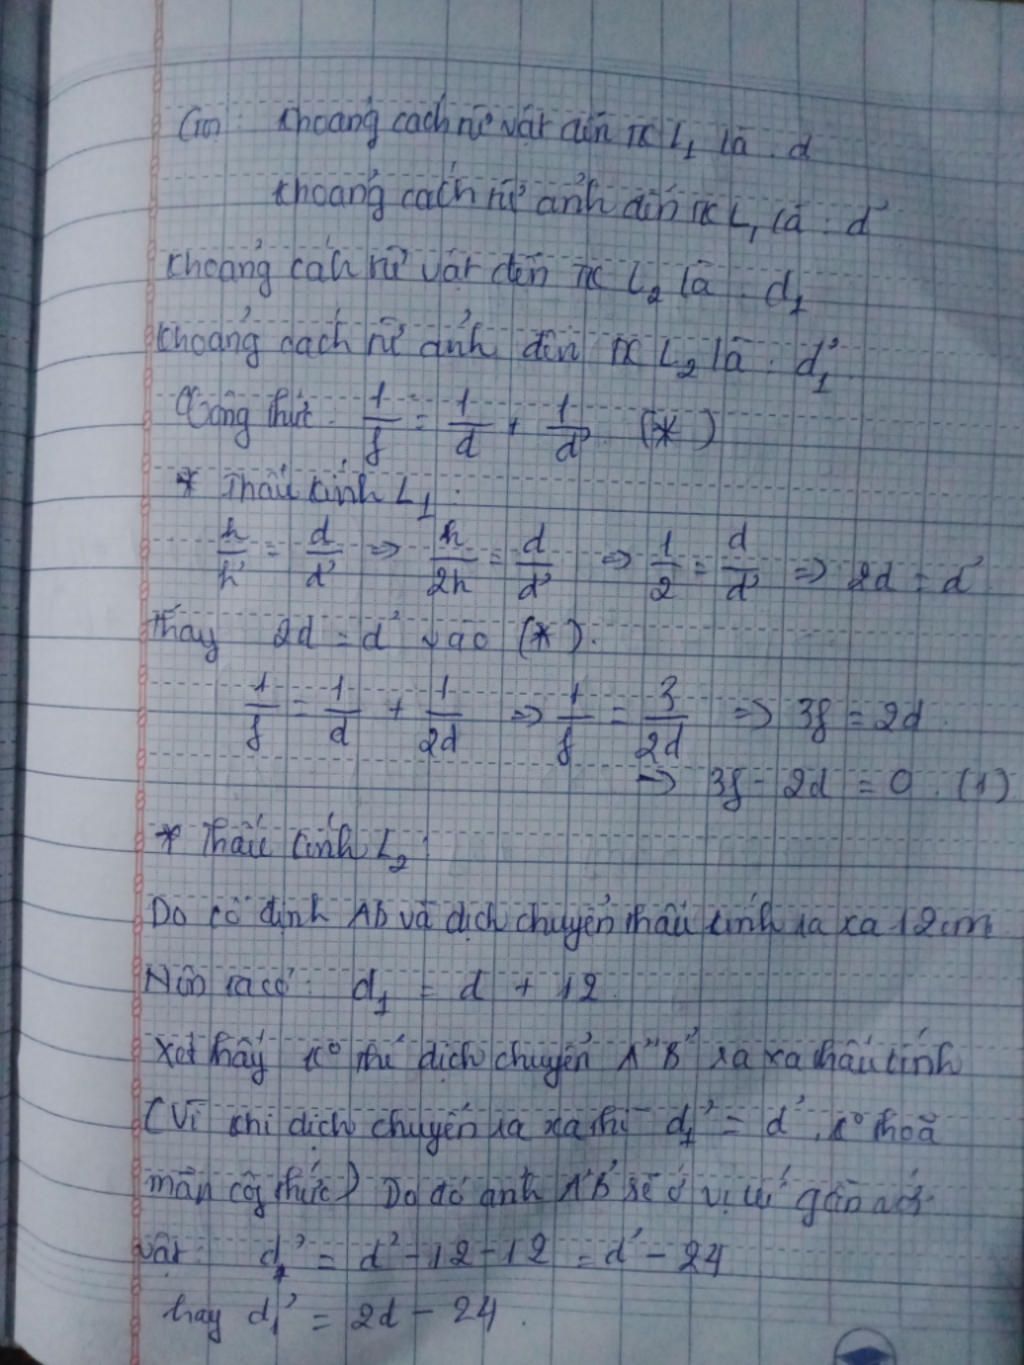 Gọi: khoảng cách từ vật đến TK L₁ là: d
khoảng cách từ ảnh đến TK L₁ là: d'
khoảng cách từ vật đến TK L₂ là: d₁
khoảng cách từ ảnh đến TK L₂ là: d₁'
Công thức: 1/f = 1/d + 1/d' (*)
* Thấu kính L₁:
h/h' = d/d' => h/2h = d/d' => 1/2 = d/d' => 2d = d'
Thay 2d = d' vào (*).
1/f = 1/d + 1/2d => 1/f = 3/2d => 3f = 2d.
=> 3f - 2d = 0. (1)
* Thấu kính L₂:
Do cố định AB và dịch chuyển thấu kính ra xa 12cm
Nên ta có: d₁ = d + 12.
Xét thấy K° thể dịch chuyển A"B" ra xa thấu kính
(Vì khi dịch chuyển ra xa thì d₁' = d', K° thoã
mãn côg thức) Do đó ảnh A'B' sẽ ở vị trí gần với
vật: d₁' = d' - 12 - 12 = d' - 24
hay d₁' = 2d - 24.